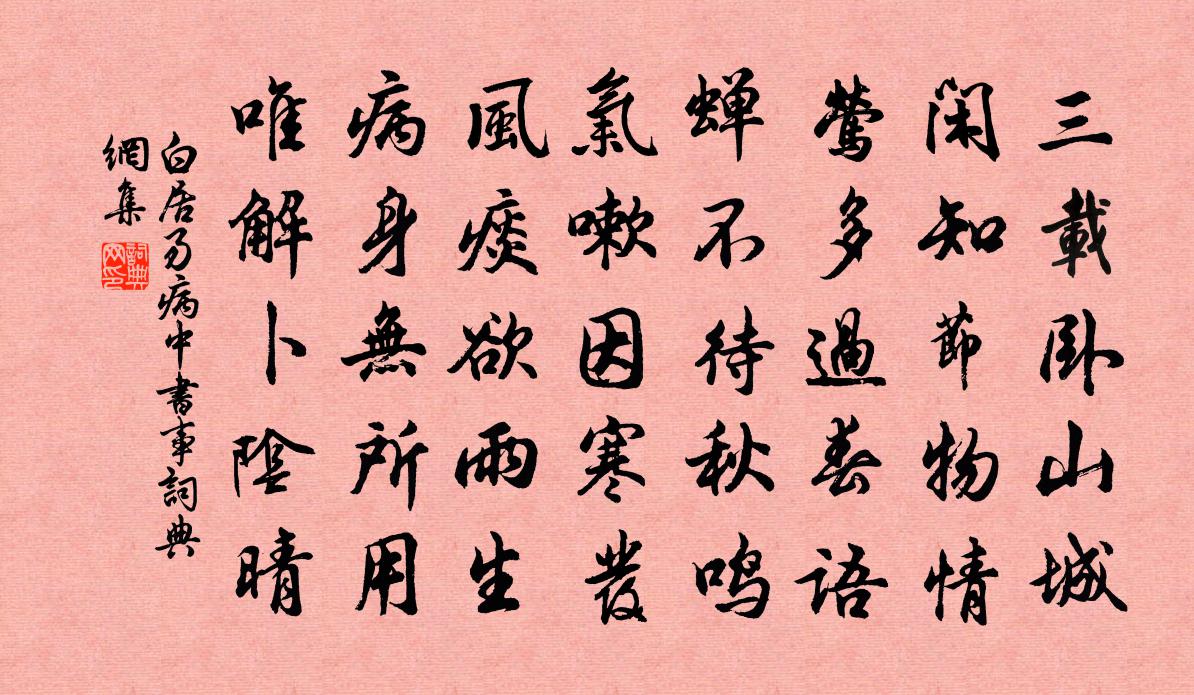 三載卧山城
閑知節物情
鶯多過春語
蟬不待秋鳴
氣嗽因寒發
風痰欲雨生
病身無所用
唯解卜陰晴
白居易病中書事詞典
網集
詞典
网印